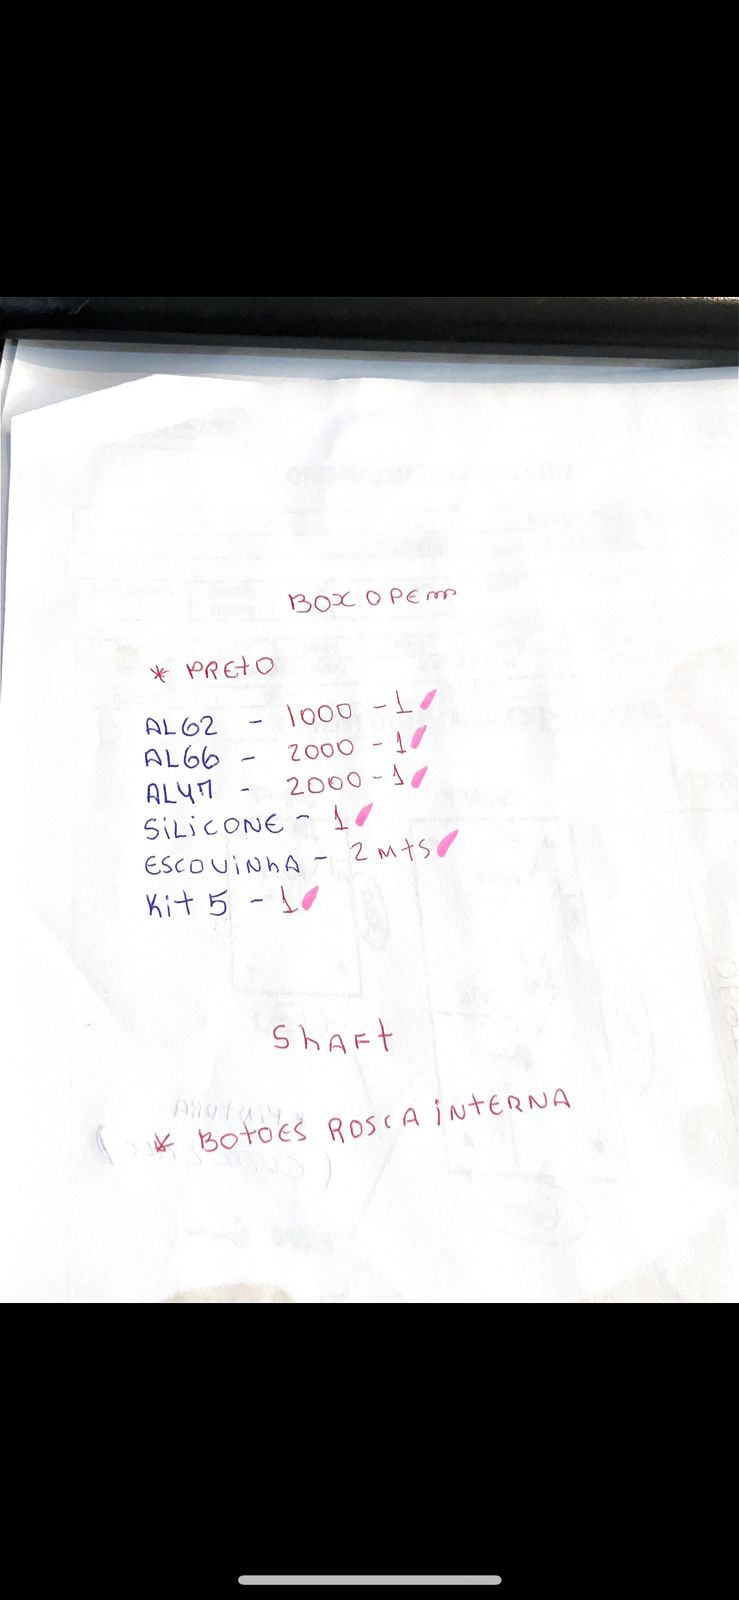 BOX OPEM
* PRETO
AL62 - 1000 - 1
AL66 - 2000 - 1
AL47 - 2000 - 1
SiLiCONE - 1
ESCOViNhA - 2 Mts
Kit 5 - 1
ShAFt
* BOtOES ROSCA iNTERNA